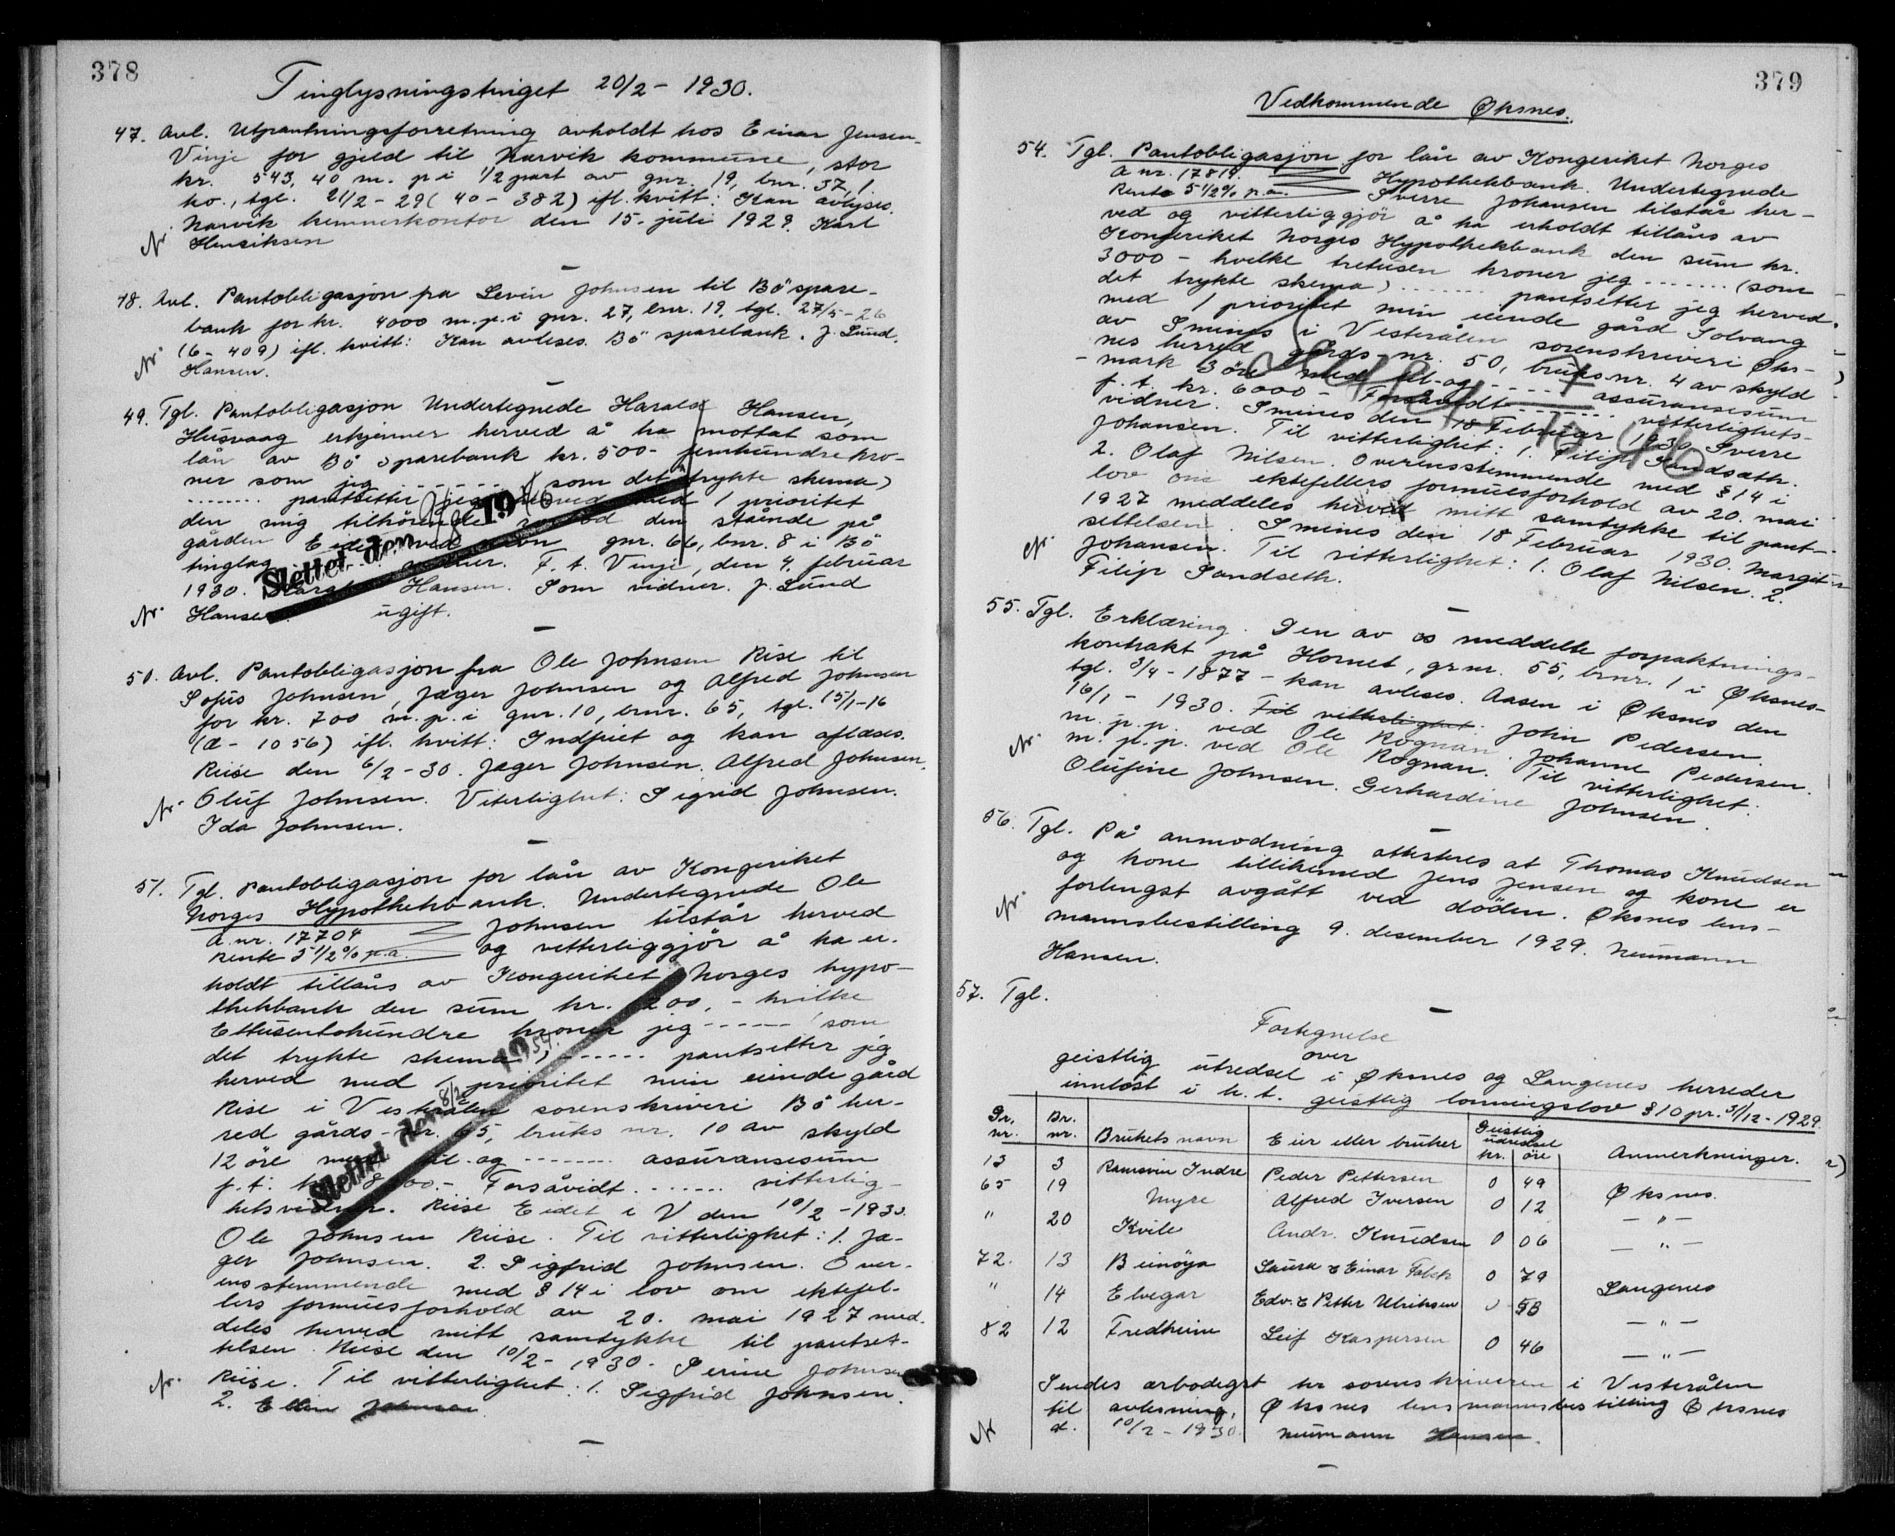 378
Tinglysningstinget 20/2 - 1930.
47. Avl. Utpantningsforretning avholdt hos Einar Jensen
Vinje for gjeld til Narvik kommune, stor
kr. 543,40 m. p. i 1/2 part av gnr. 19, bnr. 37, 1.
ko., tgl. 21/2 - 29 (40 - 382) ifl. kvitt: Kan avlyses.
Narvik kemnerkontor den 15. juli 1929. Karl
Henriksen
48. Avl. Pantobligasjon fra Levin Johnsen til Bö spare-
bank for kr. 4000 m.p.i gnr. 27, bnr. 19, tgl. 27/5 - 26
(6 - 409) ifl. kvitt: Kan avleses. Bö sparebank. J. Lund.
Hansen.
49. Tgl. Pantobligasjon Undertegnede Harald Hansen,
Husvaag erkjenner herved å ha mottat som
lån av Bö Sparebank kr. 500 - femhundrekro-
ner som jeg ...... (som det trykte skema)
....... pantsetter jeg herved med 1 prioritet
den mig tilhörende den stående på
gården Eide ved gnr. 66, bnr. 8 i Bö
tinglag vidner. F. t. Vinje, den 4. februar
1930. Harald Hansen. Som vidner. J. Lund
Hansen. ugift.
Slettet den 19
50. Avl. Pantobligasjon fra Ole Johnsen Rise til
Sofus Johnsen, Jæger Johnsen og Alfred Johnsen
for kr. 700 m.p.i gnr. 10, bnr. 65, tgl. 15/1-16
(Æ - 1056) ifl. kvitt: Indfriet og kan aflæses.
Riise den 6/2 - 30. Jæger Johnsen. Alfred Johnsen.
Oluf Johnsen. Viterlighet: Sigrid Johnsen.
Ida Johnsen.
51. Tgl. Pantobligasjon for lån av Kongeriket
Norges Hypothekbank. Undertegnede Ole
A. nr. 17704 Johnsen tilstår herved
Rente 5 1/2 % p.a. og vitterliggjör å ha er-
holdt tillåns av Kongeriket Norges hypo-
thekbank den sum kr. 1200,- hvilke
Ettusentohundre kroner jeg ------ (som
det trykte skema) ...... pantsetter jeg
herved med 1 prioritet min eiende gård
Rise i Vesterålen sorenskriveri Bö her-
red gårds-nr. 65, bruks nr. 10 av skyld
12 öre med til-og ------- assuransesum
f.t. kr. - Forsåvidt ...... vitterlig-
hetsvidner. Riise Eidet i V den 10/2 - 1930.
Ole Johnsen Riise. Til vitterlighet: 1. Jæ-
ger Johnsen. 2. Sigfrid Johnsen. Over-
ensstemmende med § 14 i lov om ektefel-
lers formuesforhold av 20. mai 1927 med-
deles herved mitt samtykke til pantset-
telsen. Riise den 10/2 - 1930. Serine Johnsen
Riise. Til vitterlighet: 1. Sigfrid Johnsen.
2. Ellen Johnsen.
Slettet den 8/2 1954
379
Vedkommende Øksnes.
54. Tgl. Pantobligasjon for lån av Kongeriket Norges
A nr. 17814. Hypothekbank. Undertegnede
Rente 5 1/2 % p.a. Sverre Johansen tilstår her-
ved og vitterliggjör å ha erholdt tillåns av
Kongeriket Norges Hypothekbank den sum kr.
3000 - hvilke tretusen kroner jeg ....... (som
det trykte skema) ....... pantsetter jeg herved
med 1 prioritet min eiende gård Solvang
av Smines i Vesterålen sorenskriveri Øks-
nes herred gårds nr. 50, bruks nr. 4 av skyld
- mark 3 öre med til-og ..... assuransesum
f. t. kr. 6000 - Forsåvidt ....... vitterlighets-
vidner. Smines den 18 Februar 1930 Sverre
Johansen. Til vitterlighet: 1. Filip Sandseth.
2. Olaf Nilsen. Overensstemmende med § 14 i
lov om ektefellers formuesforhold av 20. mai
1927 meddeles herved mitt samtykke til pant-
settelsen. Smines den 18 Februar 1930. Margit
Johansen. Til vitterlighet: 1. Olaf Nilsen. 2.
Filip Sandseth.
55. Tgl. Erklæring. Den av os meddelte forpaktnings-
kontrakt på Hornet, gr.nr. 55, br.nr. 1 i Øksnes
tgl. 3/4 - 1877 - kan avleses. Aasen i Øksnes den
16/1 - 1930. Til vitterlighet. John Pedersen
m. p. p. ved Ole Rognan. Johanne Pedersen.
m. p. p. ved Ole Rognan. Til vitterlighet.
Olufine Johnsen. Gerhardine Johnsen.
56. Tgl. På anmodning attesteres at Thomas Knudsen
og kone tillikemed Jens Jensen og kone er
forlengst avgått ved döden. Øksnes lens-
mannsbestilling 9. desember 1929. Neumann
Hansen.
57. Tgl.
Fortegnelse
over
geistlig utredsel i Øksnes og Langenes herreder
innlöst i h. t. geistlig lonningslov § 10 pr. 31/12 - 1929.
Gr. nr. Br. nr. Brukets navn Eier eller bruker Geistlig utredsel kr. öre Anmerkninger.
13 3 Ramsvin Indre Peder Pettersen 0 49 Øksnes.
65 19 Myre Alfred Iversen 0 12 - " -
" 20 Kvile Andr. Knudsen 0 06 - " -
72. 13 Beinöya Laura & Einar Falck 0 79 Langenes
" 14 Elvegar Edv. & Petter Ulriksen 0 58 - " -
82 12 Fredheim Leif Kaspersen 0 46 - " -
Sendes ærbödigst hr sorenskriveren i Vesterålen
til avlesning. Øksnes lensmannsbestilling Øksnes
d. 10/2 - 1930. Neumann Hansen.